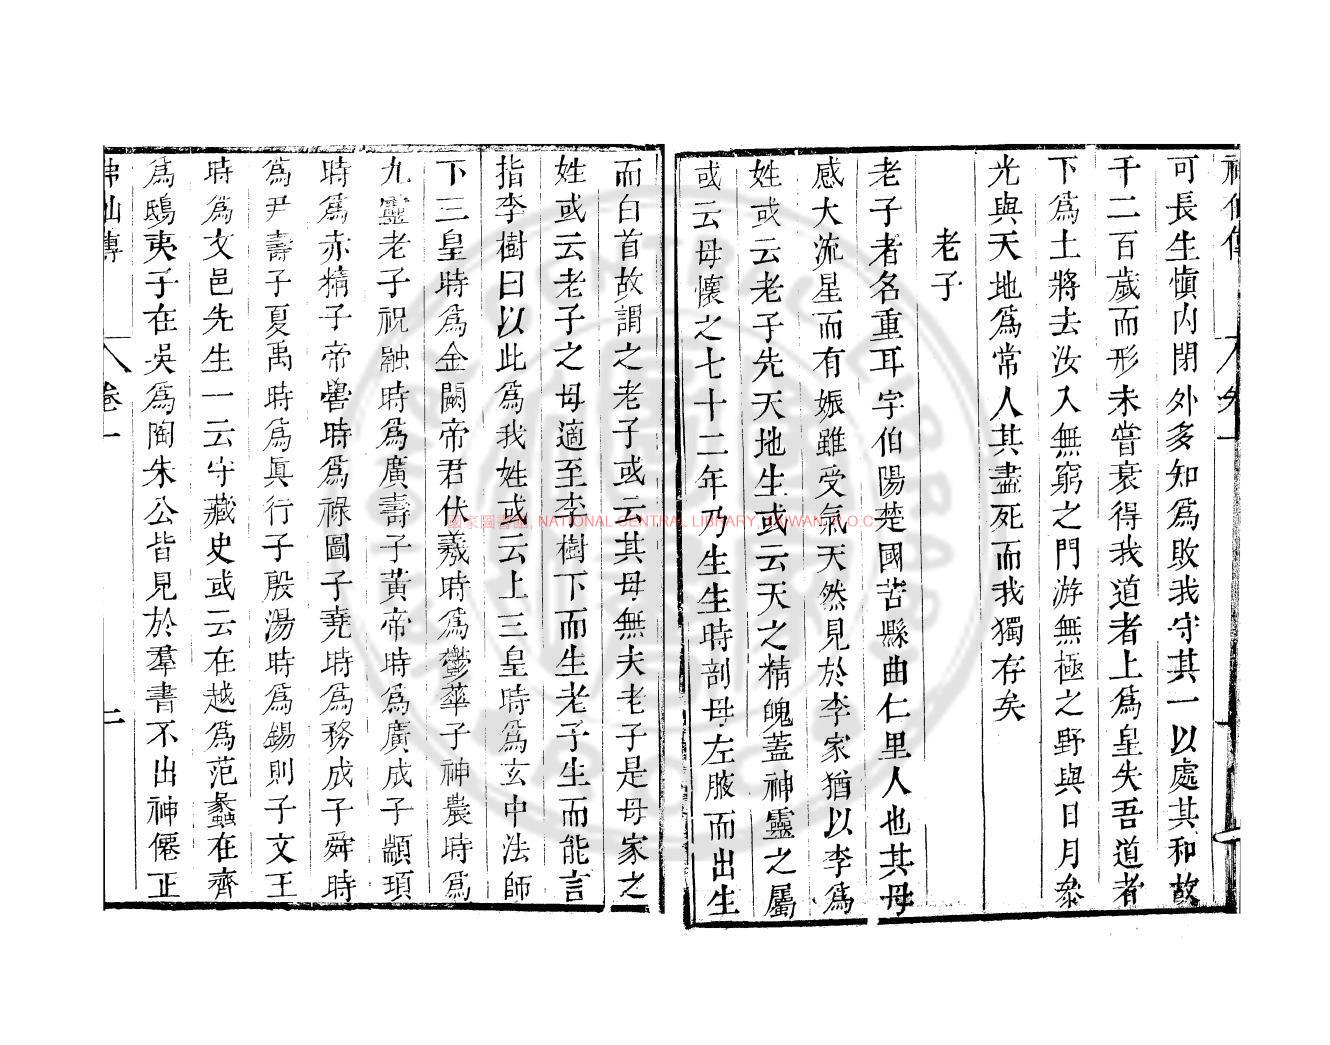 可長生慎內閉外多知爲敗我守其一以處其和故
千二百歲而形未嘗衰得我道者上爲皇失吾道者
下爲土將去汝入無窮之門游無極之野與日月參
光與天地爲常人其盡死而我獨存矣
老子
老子者名重耳字伯陽楚國苦縣曲仁里人也其母
感大流星而有娠雖受氣天然見於李家猶以李爲
姓或云老子先天地生或云天之精魄蓋神靈之屬
或云母懷之七十二年乃生生時剖母左腋而出生
而白首故謂之老子或云其母無夫老子是母家之
姓或云老子之母適至李樹下而生老子生而能言
指李樹曰以此爲我姓或云上三皇時爲玄中法師
下三皇時爲金闕帝君伏羲時爲鬱華子神農時爲
九靈老子祝融時爲廣壽子黃帝時爲廣成子顓頊
時爲赤精子帝嚳時爲祿圖子堯時爲務成子舜時
爲尹壽子夏禹時爲眞行子殷湯時爲錫則子文王
時爲文邑先生一云守藏史或云在越爲范蠡在齊
爲鴟夷子在吳爲陶朱公皆見於羣書不出神僊正
卷一
二
國家圖書館, NATIONAL CENTRAL LIBRARY, TAIWAN, R.O.C